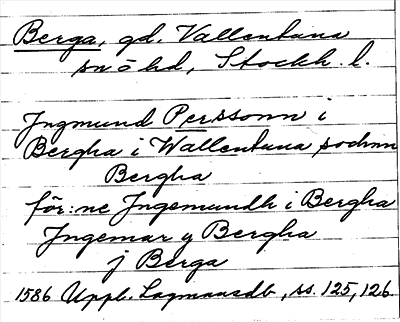 Berga, gd. Vallentuna
sn ö hd, Stockh. l.
Ingmund Perssonn i
Bergha i Wallentuna sochnn
Bergha
för:ne Ingemundh i Bergha
Ingemar y Bergha
j Berga
1586 Uppl. Lagmansdb, ss. 125, 126.